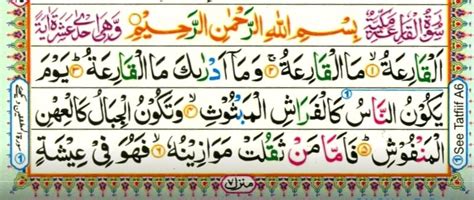 سُوْرَةُ الْقَارِعَةِ مَكِّيَّةٌ بِسْمِ اللهِ الرَّحْمٰنِ الرَّحِيْمِ وَهِىَ اِحْدٰى عَشْرَةَ اٰيَةً
اَلْقَارِعَةُ ۙ﴿۱﴾ مَا الْقَارِعَةُ ۚ﴿۲﴾ وَمَاۤ اَدْرٰىكَ مَا الْقَارِعَةُ ؕ﴿۳﴾ يَوْمَ
يَكُوْنُ النَّاسُ كَالْفَرَاشِ الْمَبْثُوْثِ ۙ﴿۴﴾ وَتَكُوْنُ الْجِبَالُ كَالْعِهْنِ
الْمَنْفُوْشِ ؕ﴿۵﴾ فَاَمَّا مَنْ ثَقُلَتْ مَوَازِيْنُهٗ ۙ﴿۶﴾ فَهُوَ فِىْ عِيْشَةٍ
منزل ۷
See Tatfiif A6